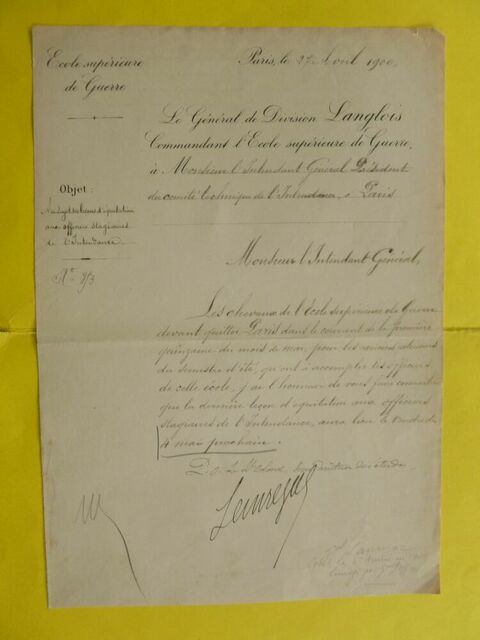 Ecole supérieure
de Guerre
Paris, le 27 Avril 1900
Le Général de Division Langlois
Commandant l'Ecole supérieure de Guerre,
à Monsieur l'Intendant Général Président
du comité technique de l'Intendance, à Paris
Objet :
Au sujet des leçons d'équitation
aux officiers stagiaires
de l'Intendance
Monsieur l'Intendant Général,
Les chevaux de l'École supérieure de Guerre
devant quitter Paris dans le courant de la première
quinzaine du mois de mai, pour les
du semestre d'été, qu'ont à accomplir les officiers
de cette école, j'ai l'honneur de vous faire connaître
que la dernière leçon d'équitation aux officiers
stagiaires de l'Intendance, aura lieu le Vendredi
4 mai prochain.
P.O. Le Lt Colonel des études